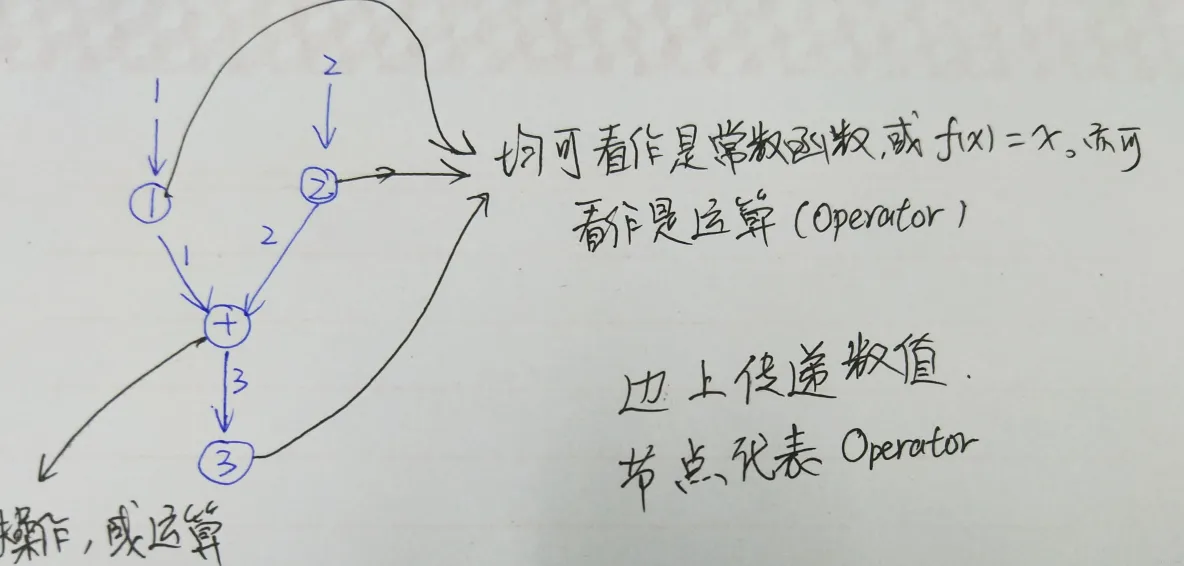 1
2
均可看作是常数函数,或 f(x)=x。亦可
① ②
看作是运算(Operator)
1 2
+
边上传递数值.
3
③
节点代表 Operator
操作,或运算